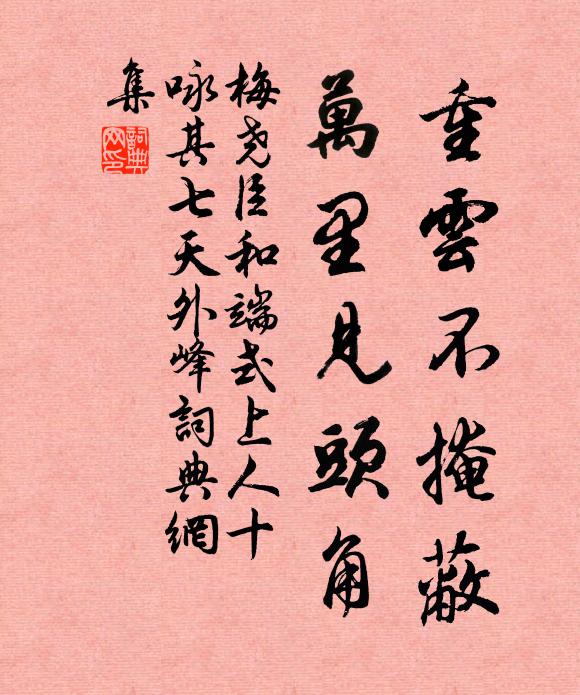 重雲不掩蔽
萬里見頭角
梅堯臣和端式上人十
咏其七天外峰詞典網
集
詞典
网印